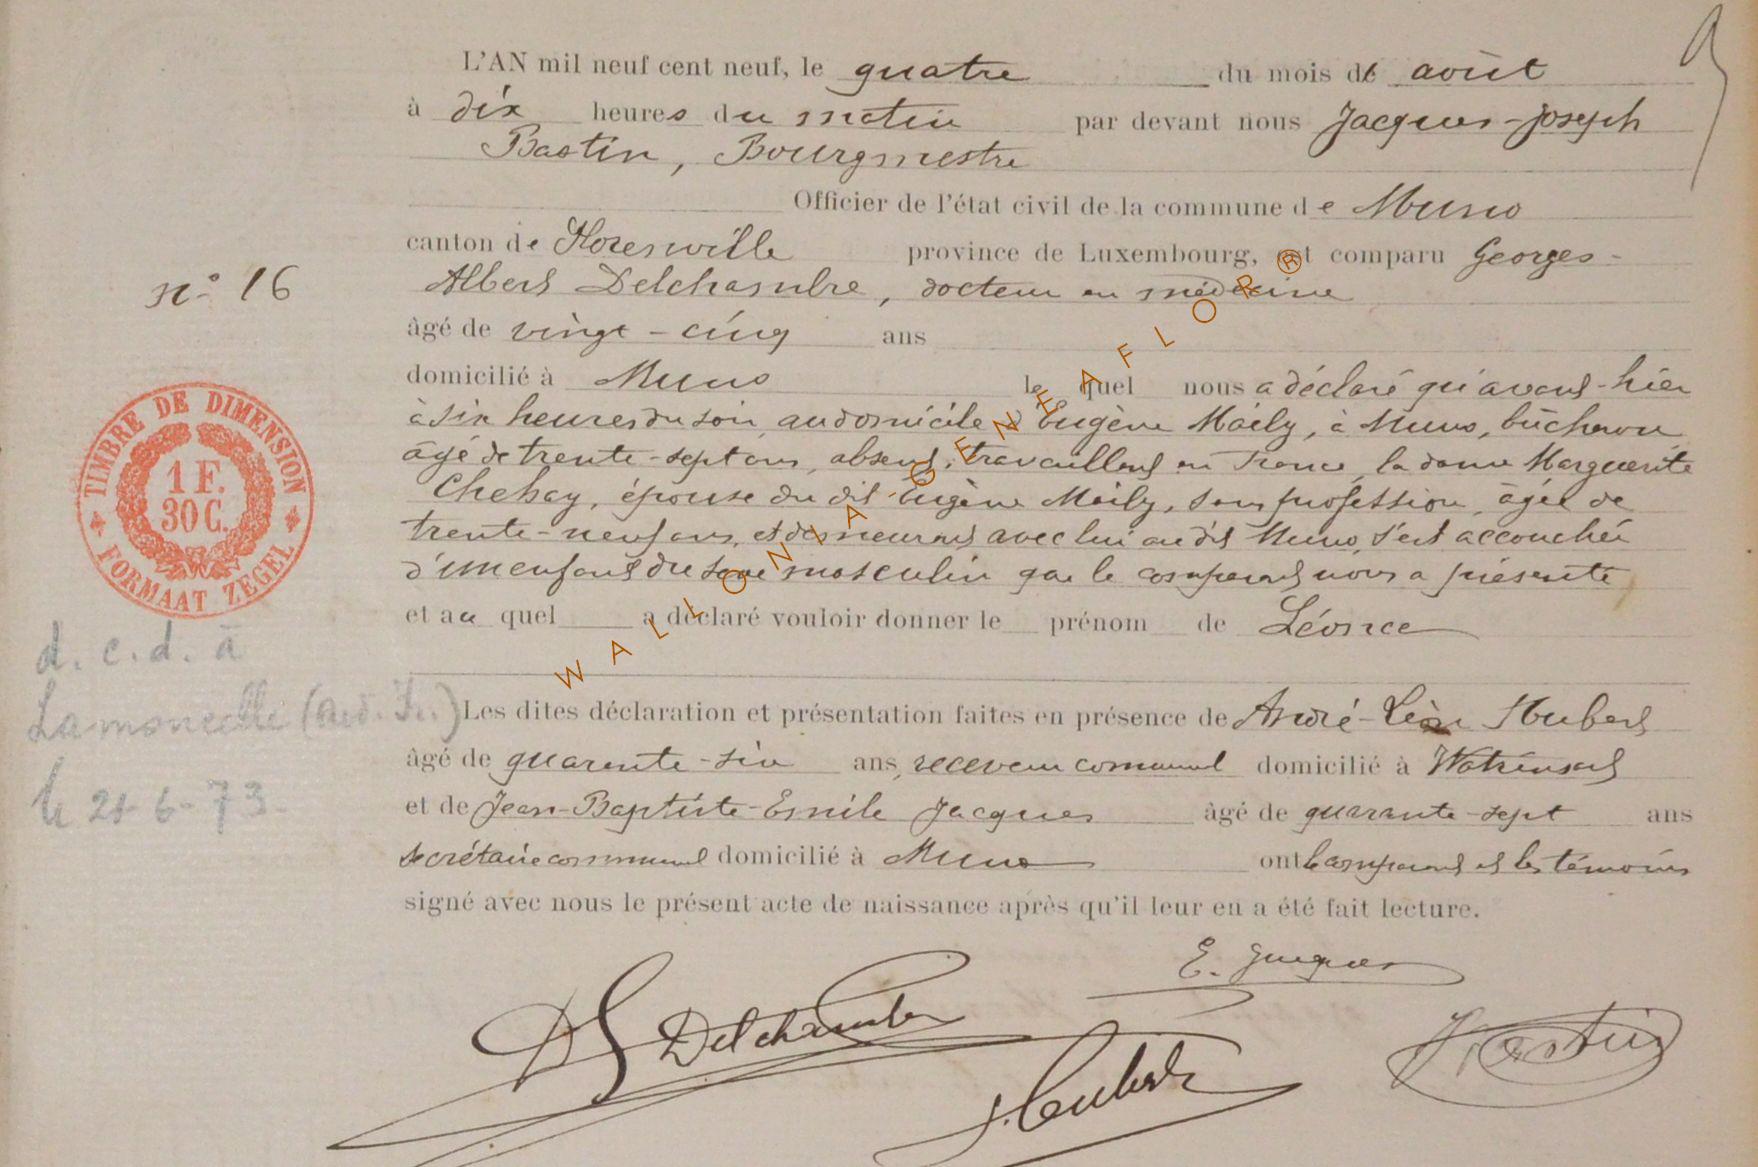 L'AN mil neuf cent neuf, le quatre du mois de août
à dix heures du matin par devant nous Jacques-Joseph
Bastin, Bourgmestre
Officier de l'état civil de la commune de Muno
canton de Florenville province de Luxembourg, est comparu Georges-
Albert Delchambre, docteur en médecine
n° 16
âgé de vingt-cinq ans
domicilié à Muno lequel nous a déclaré qu'avant-hier
à six heures du soir, au domicile d'Eugène Maily, à Muno, bûcheron
âgé de trente-sept ans, absent, travaillant en France, la dame Marguerite
Chehay, épouse du dit Eugène Maily, sans profession, âgée de
trente-neuf ans, et demeurant avec lui au dit Muno, s'est accouchée
d'un enfant du sexe masculin que le comparant nous a présenté
et au quel a déclaré vouloir donner le prénom de Léonce
TIMBRE DE DIMENSION
1 F.
30 C.
FORMAAT ZEGEL
d. c. d. à
Lamoncelle (Ard. Fr.)
le 21-6-73
Les dites déclaration et présentation faites en présence de André-Léon Hubert
âgé de quarante-six ans, receveur communal domicilié à Watrinsart
et de Jean-Baptiste-Emile Jacques âgé de quarante-sept ans
secrétaire communal domicilié à Muno ont le comparant et les témoins
signé avec nous le présent acte de naissance après qu'il leur en a été fait lecture.
E. Jacques
Delchambre
Hubert
Bastin
WALLONIA-GENEAFLOR®